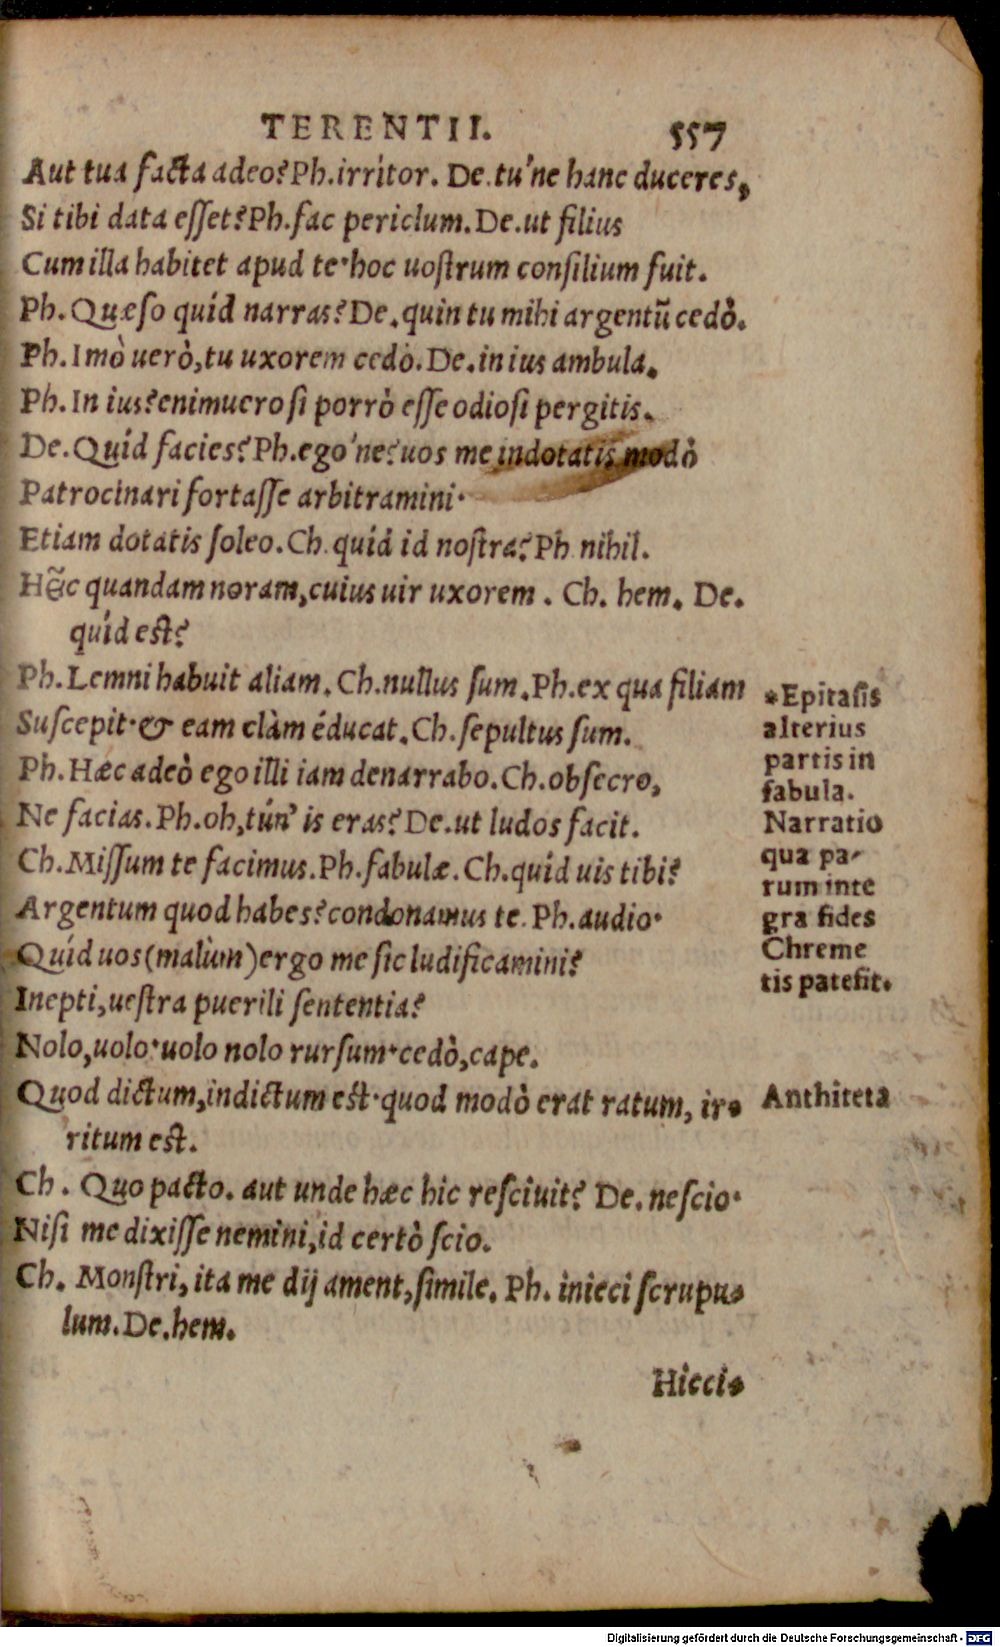 TERENTII. 557
Aut tua facta adeo? Ph. irrítor. De. tu'ne hanc duceres,
Si tibi data esset? Ph. fac periclum. De. ut filius
Cum illa habitet apud te· hoc uostrum consilium fuit.
Ph. Quæso quíd narras? De. quin tu mihi argentũ cedò.
Ph. Imò uerò, tu uxorem cedò. De. in ius ambula.
Ph. In ius? enimuero si porrò esse odiosi pergitis.
De. Quíd facies? Ph. ego'ne? uos me indotatis modò
Patrocinari fortasse arbitramini·
Etiam dotatis soleo. Ch. quíd id nostra? Ph. nihil.
Hẽc quandam noram, cuius uir uxorem . Ch. hem. De.
quíd est?
Ph. Lemni habuit aliam. Ch. nullus sum. Ph. ex qua filiam
Suscepit· & eam clàm éducat. Ch. sepultus sum.
Ph. Hæc adeò ego illi iam denarrabo. Ch. obsecro,
Ne facias. Ph. oh, tún' is eras? De. ut ludos facit.
Ch. Missum te facimus. Ph. fabulæ. Ch. quíd uis tibi?
Argentum quod habes? condonamus te. Ph. audio·
Quíd uos (malùm) ergo me sic ludificamini?
Inepti, uestra puerili sententia?
Nolo, uolo· uolo nolo rursum· cedò, cape.
Quod dictum, indictum est· quod modò erat ratum, ir-
ritum est.
Ch. Quo pacto. aut unde hæc hic resciuit? De. nescio·
Nisi me dixisse nemini, id certò scio.
Ch. Monstri, ita me dij ament, simile. Ph. inieci scrupu-
lum. De. hem.
Hicci-
*Epitasis
alterius
partis in
fabula.
Narratio
qua pa-
rum inte
gra fides
Chreme
tis patefit.
Anthiteta
Digitalisierung gefördert durch die Deutsche Forschungsgemeinschaft - DFG